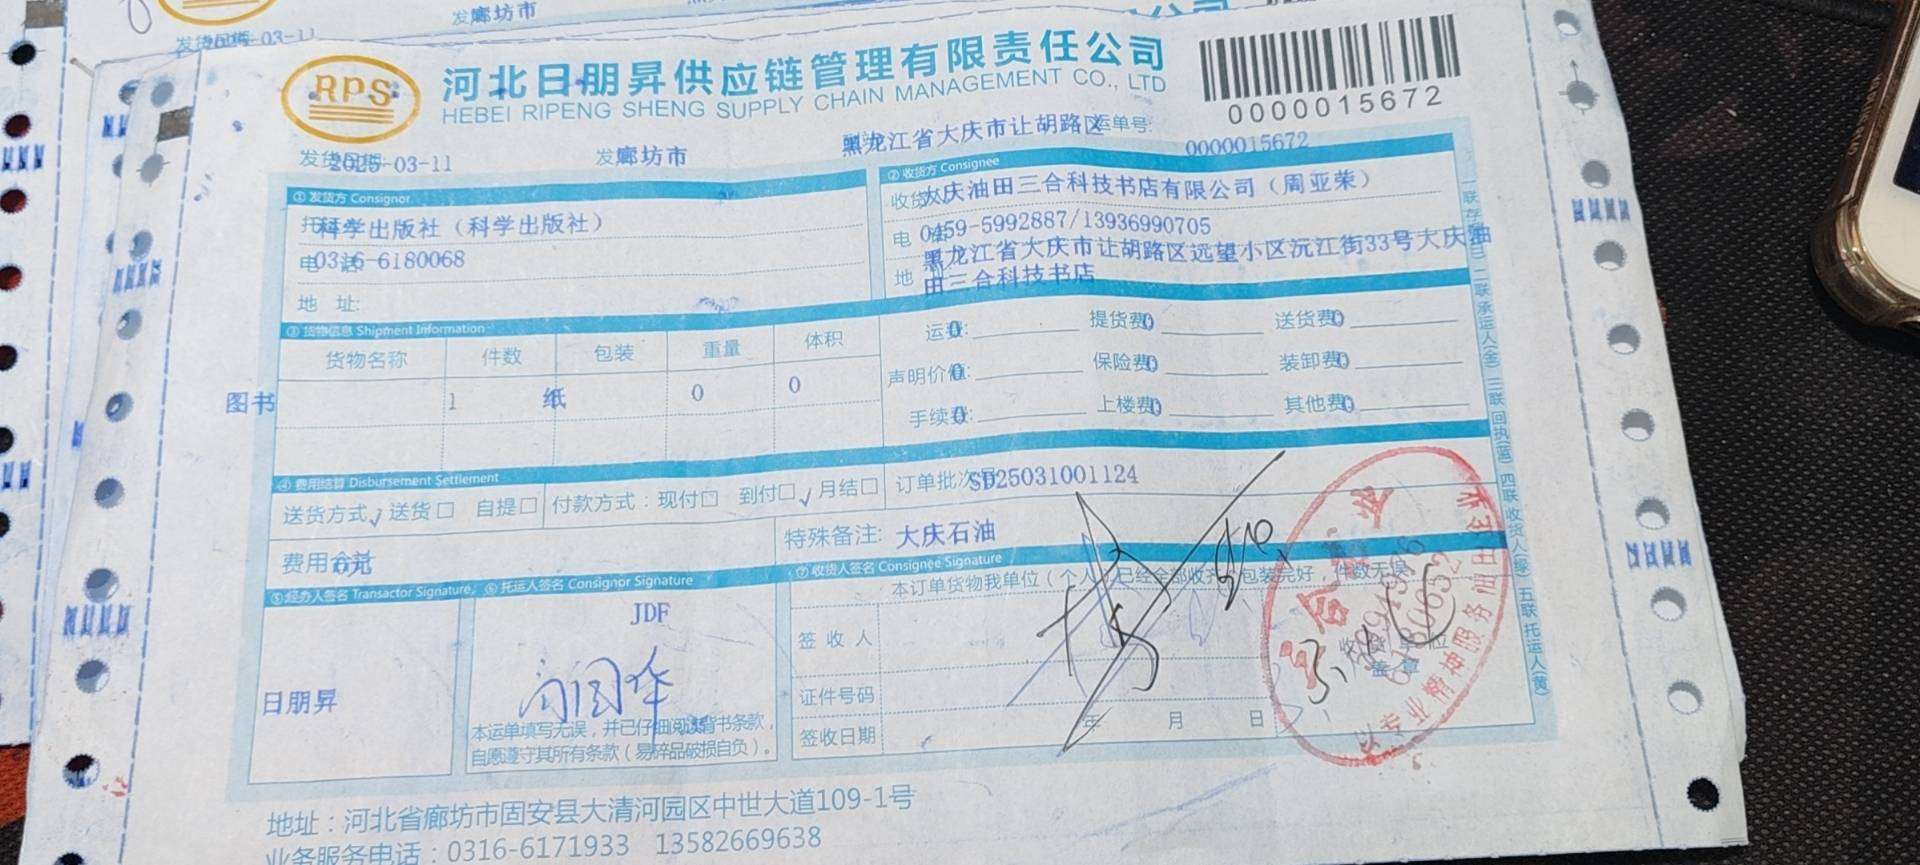 RPS
河北日朋昇供应链管理有限责任公司
HEBEI RIPENG SHENG SUPPLY CHAIN MANAGEMENT CO., LTD
0000015672
2025-03-11
廊坊市
黑龙江省大庆市让胡路区
运单号:
0000015672
① 发货方 Consignor
科学出版社（科学出版社）
0316-6180068
地 址:
② 收货方 Consignee
大庆油田三合科技书店有限公司（周亚荣）
0459-5992887/13936990705
黑龙江省大庆市让胡路区远望小区沅江街33号大庆油
田三合科技书店
③ 货物信息 Shipment Information
货物名称 件数 包装 重量 体积
图书 1 纸 0 0
运费: 0 提货费 0 送货费 0
声明价值: 0 保险费 0 装卸费 0
手续费: 0 上楼费 0 其他费 0
④ 费用结算 Disbursement Settlement
送货方式 √ 送货 □ 自提 □ 付款方式：现付 □ 到付 □ √ 月结 □
订单批次号 SD25031001124
费用合计
特殊备注: 大庆石油
⑤ 经办人签名 Transactor Signature
日朋昇
⑥ 托运人签名 Consignor Signature
JDF
本运单填写无误，并已仔细阅读背书条款，
自愿遵守其所有条款（易碎品破损自负）。
⑦ 收货人签名 Consignee Signature
本订单货物我单位（个人）已经全部收齐，包装完好，件数无误
签 收 人
证件号码
签收日期 年 月 日
收货单位
盖 章
以专业精神服务油田企业
一联存根 二联承运人(金) 三联回执(蓝) 四联收货人(绿) 五联托运人(黄)
地址：河北省廊坊市固安县大清河园区中世大道109-1号
业务服务电话：0316-6171933 13582669638